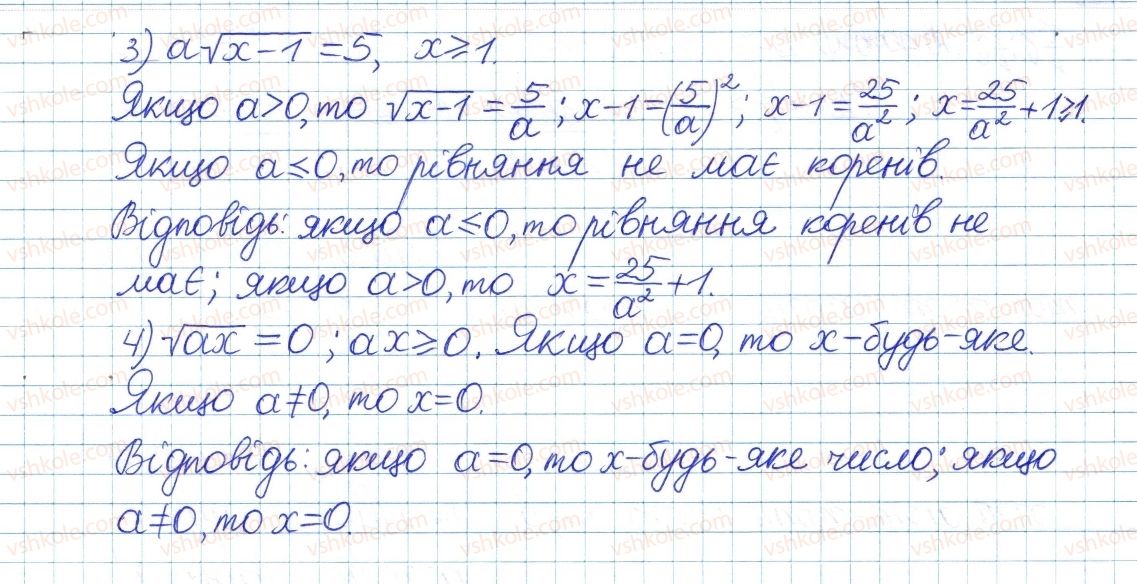 3) a√(x−1) = 5, x ≥ 1.
Якщо a>0, то √(x−1) = 5/a ; x−1 = (5/a)² ; x−1 = 25/a² ; x = 25/a² + 1 ≥ 1.
Якщо a ≤ 0, то рівняння не має коренів.
Відповідь: якщо a ≤ 0, то рівняння коренів не
має; якщо a>0, то x = 25/a² + 1.
4) √(ax) = 0 ; ax ≥ 0. Якщо a=0, то x – будь-яке.
Якщо a≠0, то x=0.
Відповідь: якщо a=0, то x – будь-яке число; якщо
a≠0, то x=0.
vshkole.com